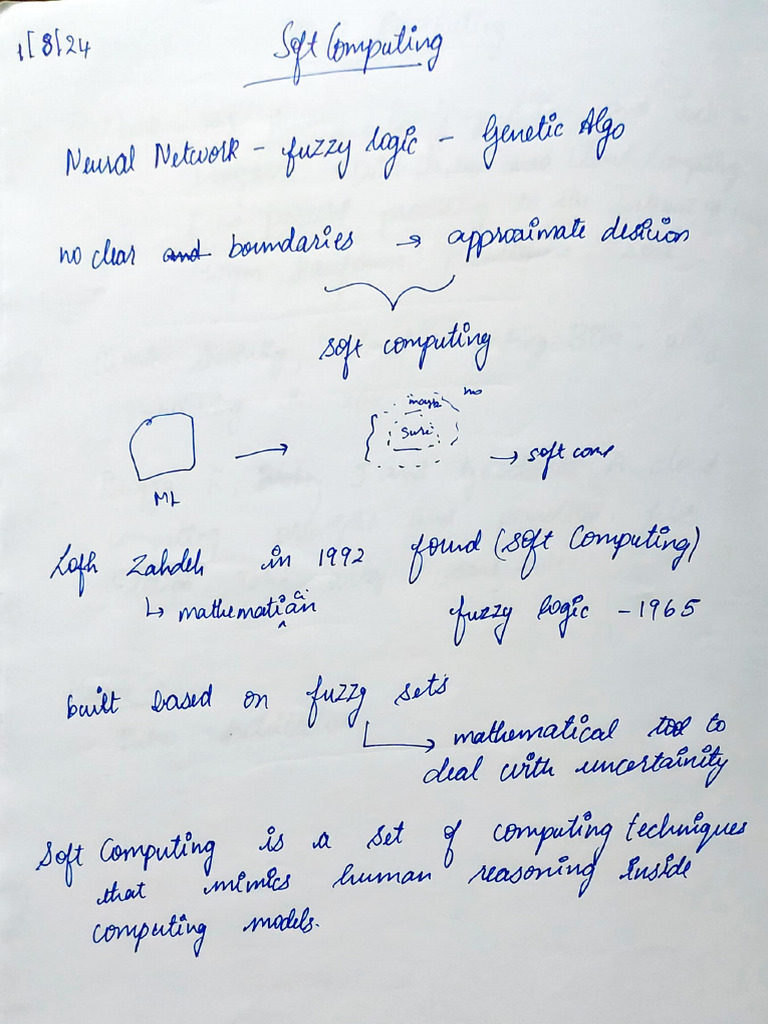 1/8/24
Soft Computing
Neural Network - fuzzy logic - Genetic Algo
no clear and boundaries → approximate desicion
soft computing
maybe no
Sure
→ soft com
ML
Lofh Zahdeh in 1992 found (Soft Computing)
↳ mathematician fuzzy logic - 1965
built based on fuzzy sets
→ mathematical tool to
deal with uncertainity
Soft Computing is a set of computing techniques
that mimics human reasoning inside
computing models.